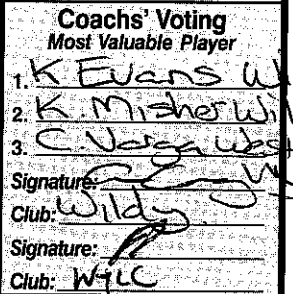 Coachs' Voting
Most Valuable Player
1. K Evans W
2. K. Misher Wil
3. C Varga West
Signature:
Club: Wildy
Signature:
Club: WYLC